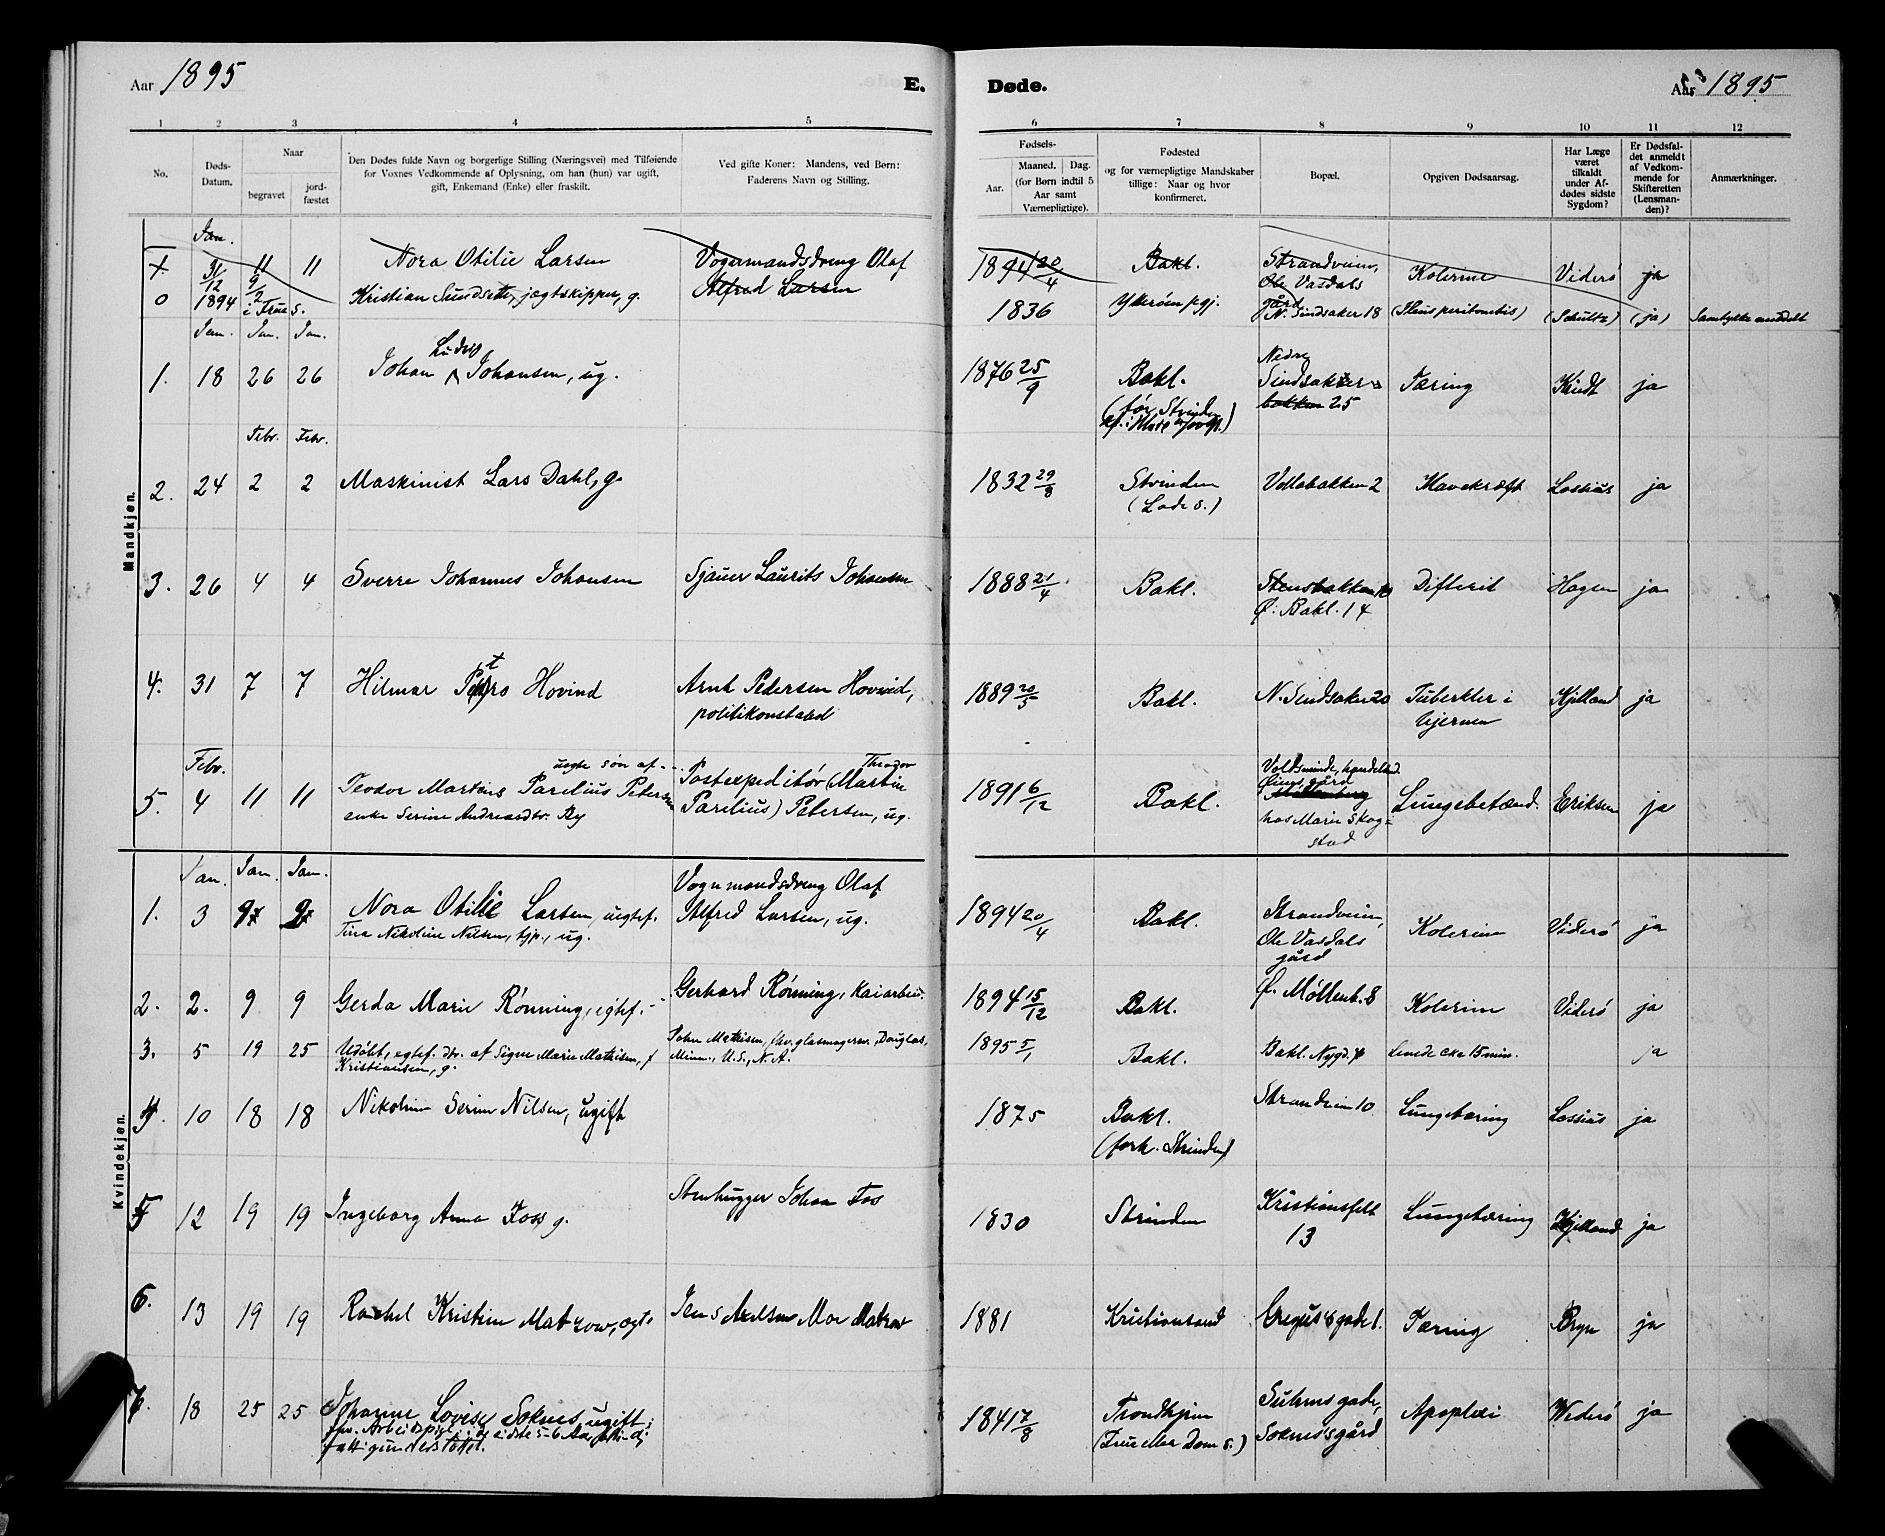 Aar 1895
E.
Døde.
Aar 1895
1 2 3 4 5 6 7 8 9 10 11 12
No.
Døds-
Datum.
Naar
begravet
jord-
fæstet
Den Dødes fulde Navn og borgerlige Stilling (Næringsvei) med Tilføiende
for Voxnes Vedkommende af Oplysning, om han (hun) var ugift,
gift, Enkemand (Enke) eller fraskilt.
Ved gifte Koner: Mandens, ved Børn:
Faderens Navn og Stilling.
Fødsels-
Aar.
Maaned. Dag.
(for Børn indtil 5
Aar samt
Værnepligtige).
Fødested
og for værnepligtige Mandskaber
tillige: Naar og hvor
konfirmeret.
Bopæl.
Opgiven Dødsaarsag.
Har Læge
været
tilkaldt
under Af-
dødes sidste
Sygdom?
Er Dødsfal-
det anmeldt
af Vedkom-
mende for
Skifteretten
(Lensman-
den)?
Anmærkninger.
Mandkjøn.
Jan.
1. 11 11 Nora Otilie Larsen Vognmandsdreng Olaf Alfred Larsen 1894 20/4 Bakl. Strandveien, Ole Vasdals gård Kolerine Viderö ja
0 31/12 1894 9/2 i Frue s. Kristian Sundsett, jægtskipper, g. 1836 pgj. N. Sindsaker 18 (Schultz) (ja) Samtykke meddelt
Jan. Jan. Jan.
1. 18 26 26 Johan Ludvig Johansen, ug. 1876 25/9 Bakl. (før Strinden) Nedre Sindsaker bakken 25 Tæring Kindt ja
Febr. Febr.
2. 24 2 2 Maskinist Lars Dahl, g. 1832 29/8 Strinden (Lade s.) Vollabakken 2 Mavekræft Lossius ja
3. 26 4 4 Sverre Johannes Johansen Sjauer Laurits Johansen 1888 21/4 Bakl. Ø. Bakl. 14 Difterit Hagen ja
4. 31 7 7 Hilmar Petro Hovind Arnt Pedersen Hovind, politikonstabel 1889 20/5 Bakl. N. Sindsaker 20 Tuberkler i hjernen Kjelland ja
Febr.
5. 4 11 11 Teodor Martens Parelius Petersen uegte søn af enke Serine Andreasdtr. By Postexpeditör (Martin Theodor Parelius) Petersen, ug. 1891 6/12 Bakl. Møllenberg hos Marie Skogstad Lungebetænd. Eriksen ja
Kvindekjøn.
Jan. Jan. Jan.
1. 3 9 9 Nora Otilie Larsen, uegtef. Tina Nikoline Nilsen, tjp., ug. Vognmandsdreng Olaf Alfred Larsen, ug. 1894 20/4 Bakl. Strandveien, Ole Vasdals gård Kolerine Viderö ja
2. 2. 9 9 Gerda Marie Rönning, egtef. Gerhard Rönning, kaiarbeid. 1894 15/12 Bakl. Ø. Møllenb. 8 Kolerine Viderö ja
3. 5 19 25 Udöbt, egtef. dtr. af Signe Marie Matisen, f. Kristiansen, g. John Matisen, glasmagersv., Douglas, Minn., U.S., N.A. 1895 5/1 Bakl. Bakl. Nygd. 4 Levede cka 15 min. ja
4. 10 18 18 Nikoline Serine Nilsen, ugift 1875 Bakl. (forh. Strinden) Strandveien 10 Lungetæring Lossius ja
5 12 19 19 Ingeborg Anna Foss g. Stenhugger Johan Fos 1830 Strinden Kristiansfelt 13 Lungetæring Kjelland ja
6. 13 19 19 Rachel Kristine Matzow, egt. Jens Moe Matzow 1881 Kristiansund Gregus's gade 1. Tæring Bryn ja
7. 18 25 25 Johanne Lovise Soknes, ugift; fhv. Arbeidspige; de sidste 5-6 Aar fattigunderstöttet. 1841 7/8 Trondhjem (Frue Dom s.) Suhms gade, Soknes gård Apoplexi Widerö ja